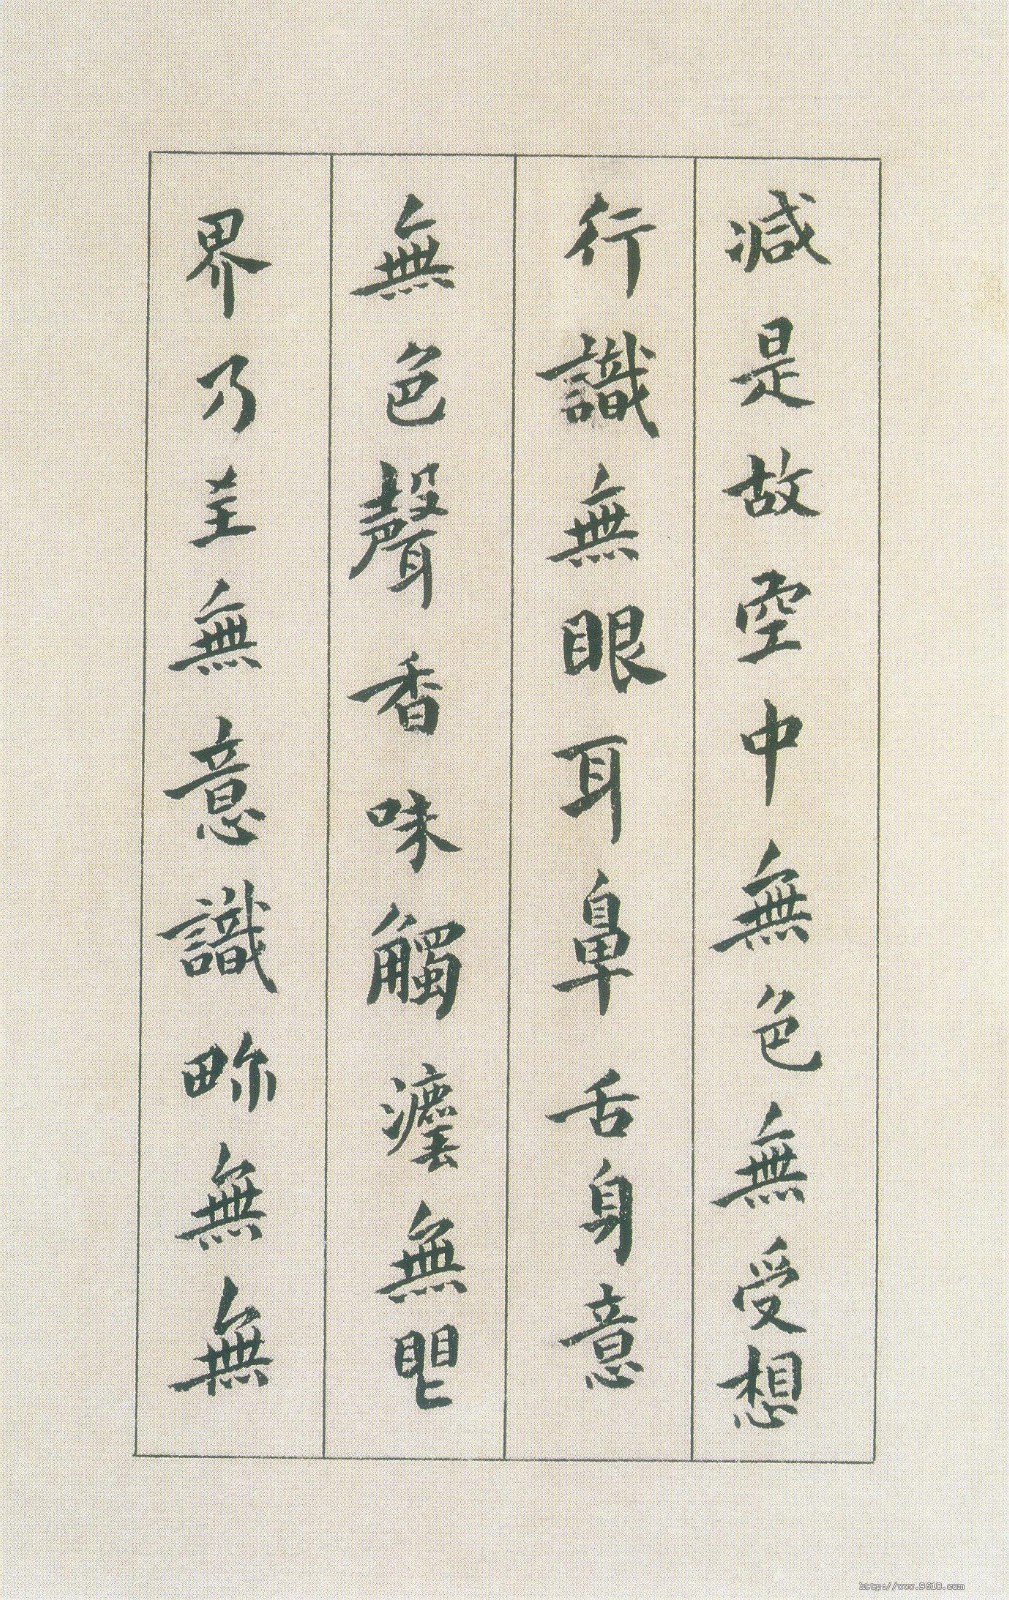 減是故空中無色無受想
行識無眼耳鼻舌身意
無色聲香味觸灋無
界乃至無意識畍無無
http://www.9610.com